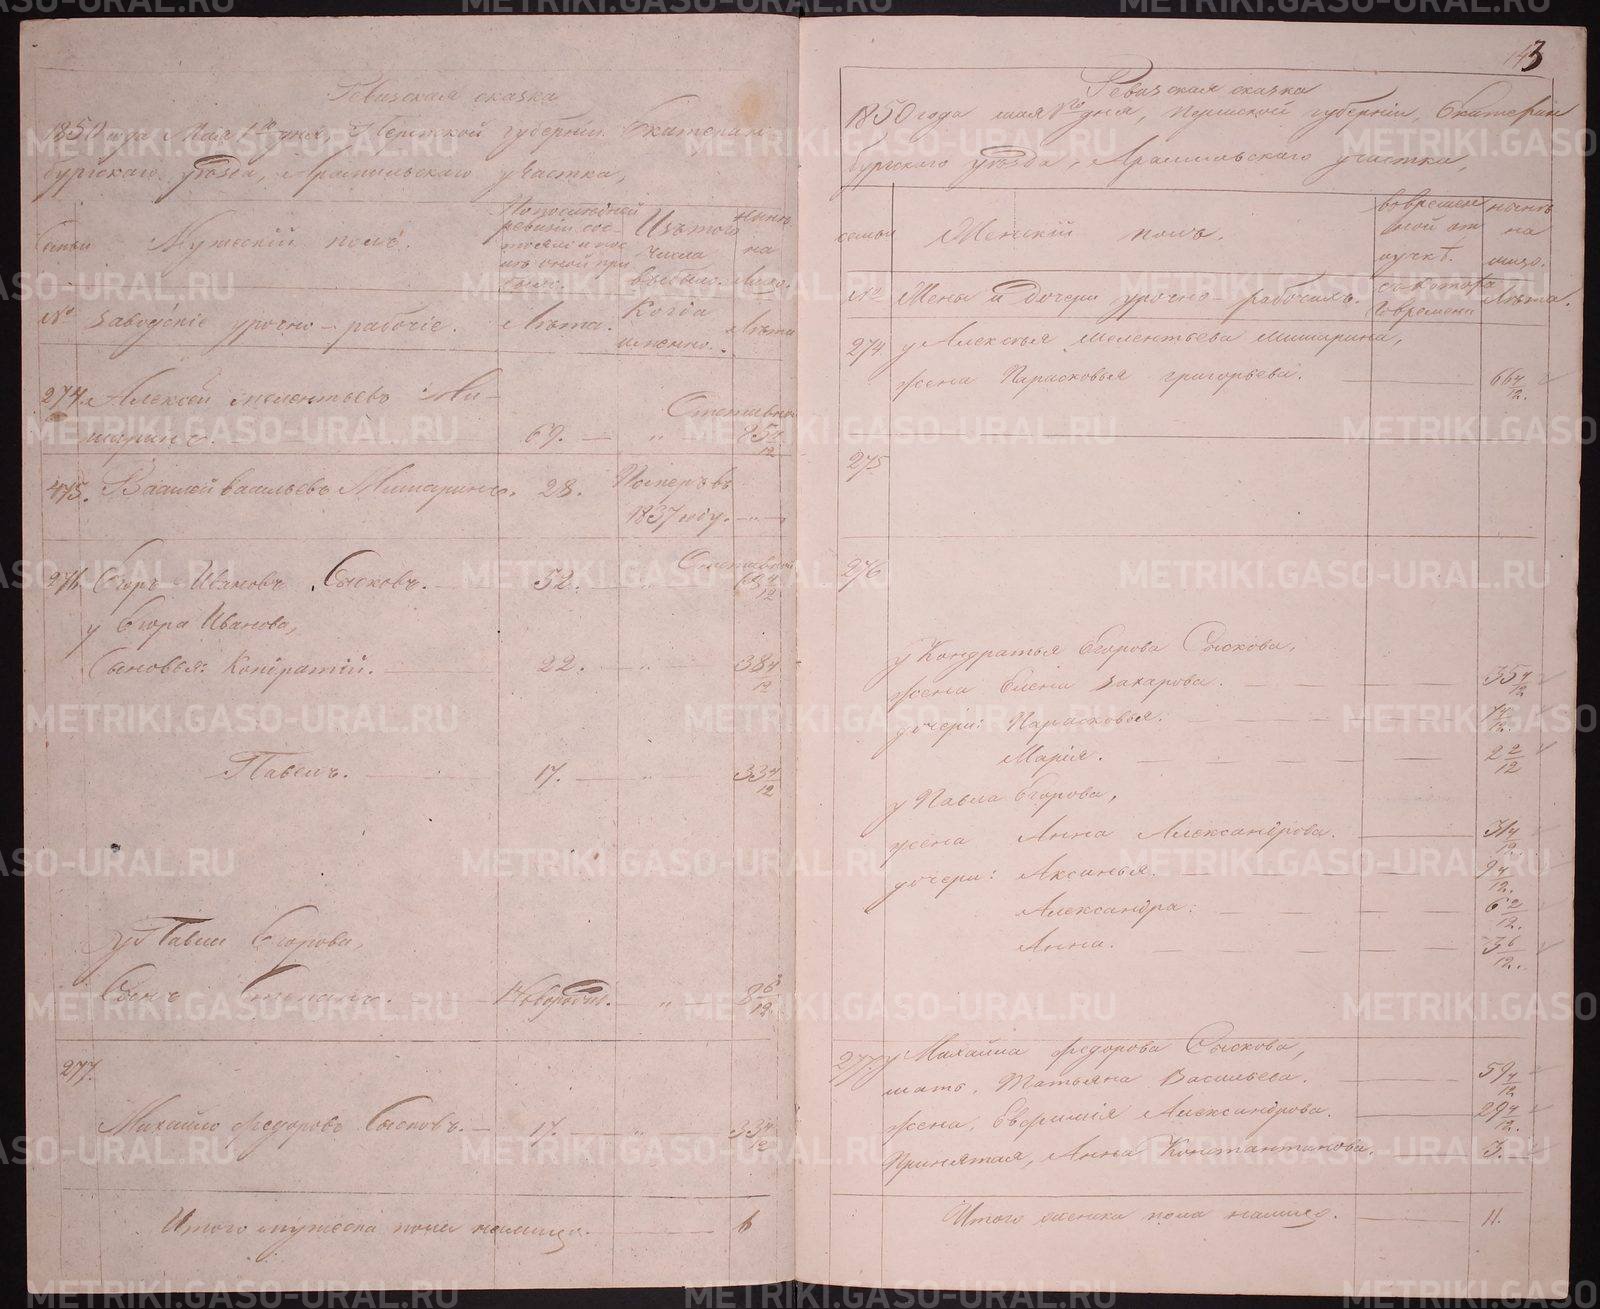 Ревизская сказка
1850 года Мая 1го дня, Пермской губернии Екатерин
бургского уезда, Арамильскаго участка,
Семьи
Мужескій полъ.
По последней
ревизіи сос-
тояло и пос
ле оной при
было.
Изъ того
числа
выбыло.
Ныне
на
лицо.
№
Заводскіе урочно-рабочіе.
Лета.
Когда
именно.
Лета
274. Алексей Мелентьевъ Ми-
шаринъ. 69. " Отставной 85 4/12
475. Васильевъ Мишаринъ. 28. Померъ въ
1837 году. "
276. Егоръ Ивановъ Сысковъ. 52. " Отставной 68 4/12
у Егора Иванова,
Сыновья: Кондратій. 22. " 38 4/12
Павелъ. 17. " 33 4/12
у Павла Егорова,
Сынъ Степанъ. Новорожд. " 8 6/12
277.
Михайло Федоровъ Сысковъ. 17. " 33 4/12
Итого мужеска пола налицо. 6
143
Ревизская сказка
1850 года мая 1го дня, Пермской губерніи, Екатерин
бургскаго уезда, Арамильскаго участка,
семьи
Женскій полъ.
вовремен
ной от
лучке.
ныне
на
лицо.
№
Жены и дочери урочно-рабочихъ.
съ котора
го времени
Лета.
274 у Алексея Мелентьева Мишарина,
жена Парасковья Григорьева. 66 4/12.
275
276
у Кондратья Егорова Сыскова,
жена Елена Захарова. 35 4/12
дочери: Парасковья. 14/12.
Марія. 2 2/12
у Павла Егорова,
жена Анна Александрова. 31 4/12.
дочери: Аксинья. 9 4/12.
Александра. 6 2/12.
Анна. 3 6/12.
277. у Михайла Федорова Сыскова,
мать, Татьяна Васильева. 59 4/12
жена, Евфимія Александрова. 29 4/12.
Принятая, Анна Константинова. 3.
Итого женска пола налицо. 11.
METRIKI.GASO-URAL.RU